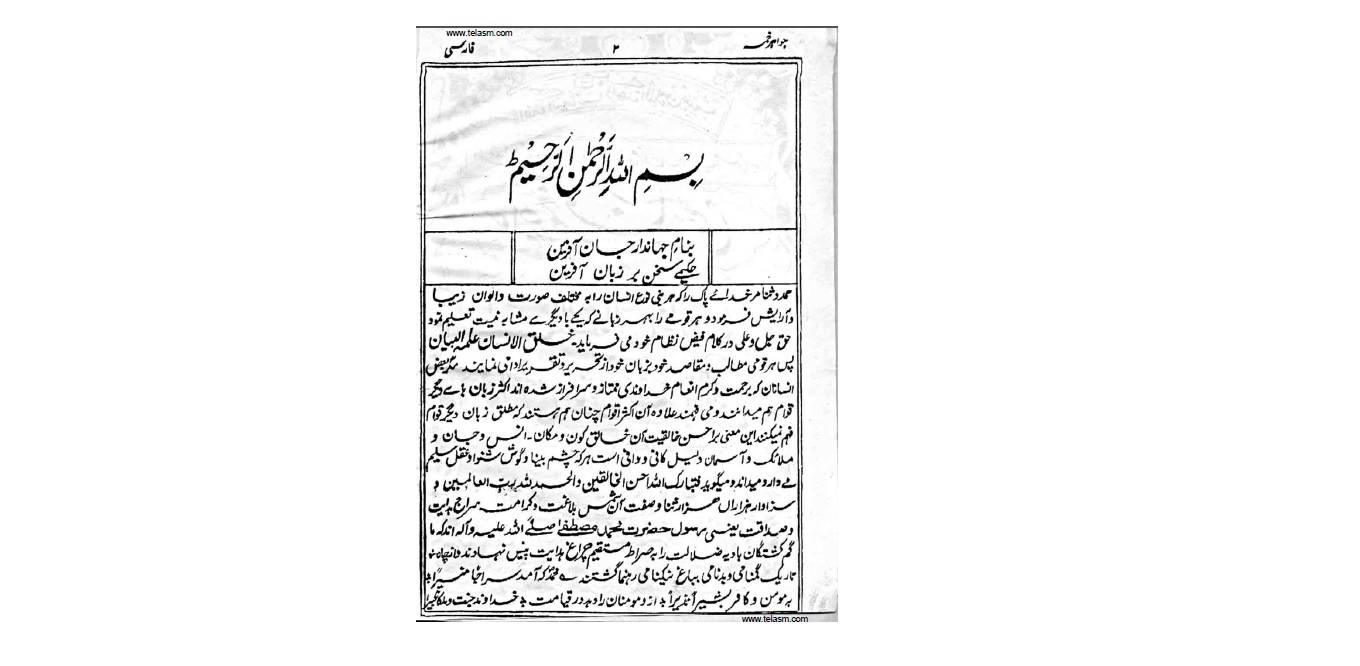 www.telasm.com
جواهر خمسه ۲ فارسی
بِسْمِ اللهِ الرَّحْمٰنِ الرَّحِيْمِ ط
بنام جهاندار جان آفرین
حکیمے سخن بر زبان آفرین
حمد و ثنا مر خدائے پاک را که هر بنی نوع انسان را به مختلف صورت والوان زیبا
و آرایش فرمود و هر قومے را بهر زبانے که یکے بادیگرے مشابه نیست تعلیم نمود
حق جل وعلی در کلام فیض نظام خود می فرماید۔ خلق الانسان علمه البیان
پس هر قومی مطالب و مقاصد خود بزبان خود از تحریر و تقریر ادا می نمایند مگر بعض
انسانان که برحمت و کرم انعام خداوندی ممتاز و سرافراز شده اند اکثر زبان هاے دیگر
قوام هم میدانند و می فهمند علاوه آن اکثر اقوام چنان هم هستند که مطلق زبان دیگر قوام
فهم نمیکنند این معنی بر احسن خالقیت آن خالق کون و مکان۔ انس و جان و
ملائک و آسمان دلیل کافی و وافی است هر که چشم بینا و گوش شنوا و عقل سلیم
مے دارد میداند و میگوید فتبارک الله احسن الخالقین والحمد لله رب العالمین و
سزاوار هزاران هزار ثنا و صفت آن شمس بلاغت و کرامت سراج هدایت
و صداقت یعنی رسول حضرت محمد مصطفے صلے الله علیه و آله اند که ما
گم گشتگان بادیه ضلالت را به صراط مستقیم چراغ هدایت پیش نهادند و از چاه
تاریک گمنامی و بدنامی بباغ نیکنامی رهنما گشتند که آمد سراجا منیرًا
به مومن و کافر بشیرًا نذیرًا از و مومنان را دهد در قیامت خداوند جنت و ملکا کبیرا
www.telasm.com